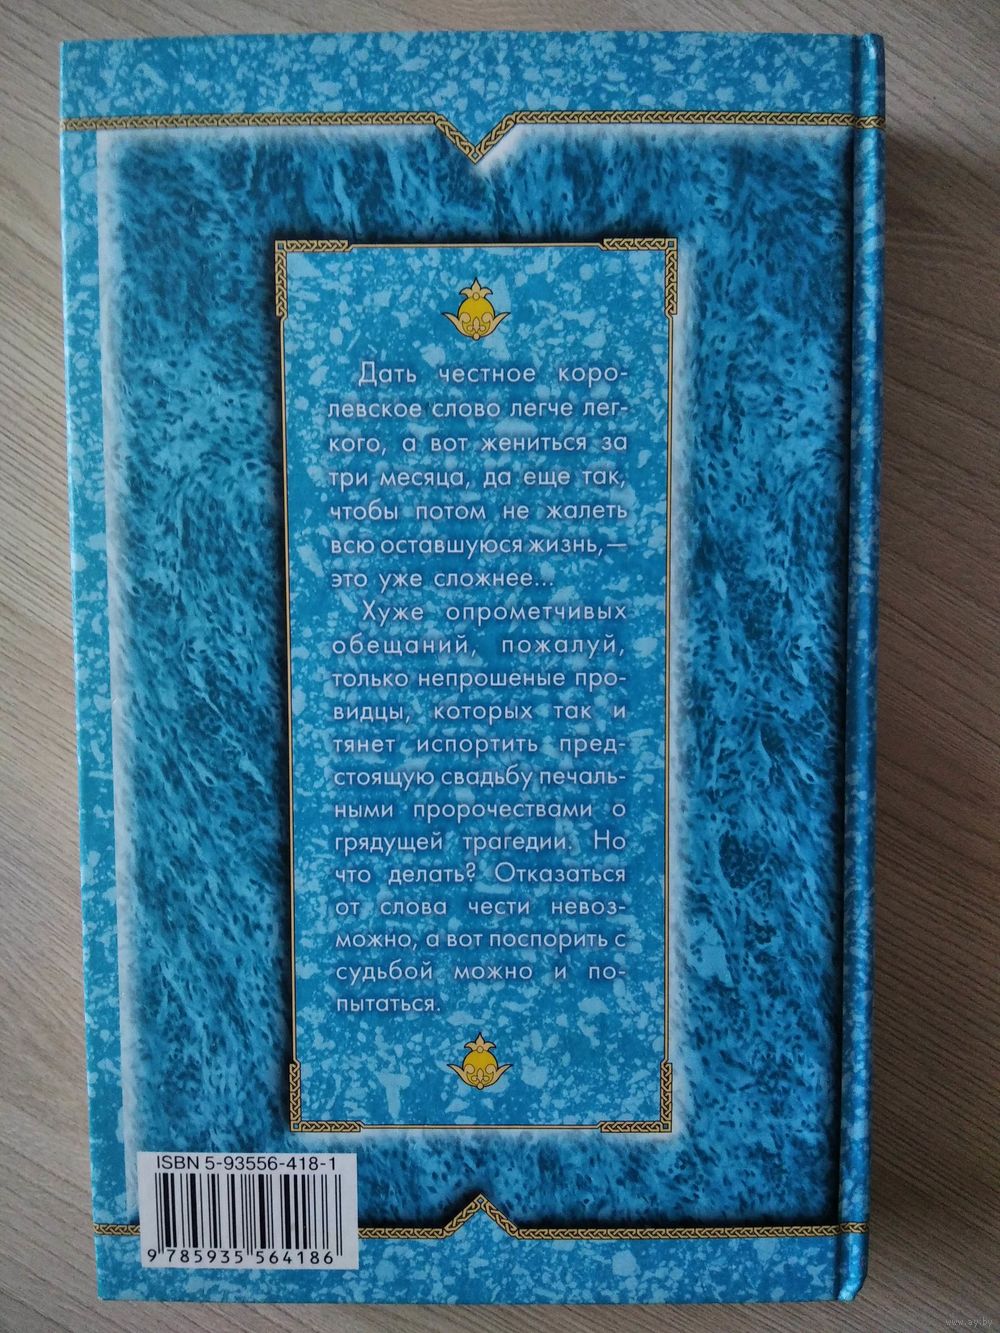 Дать честное коро-
левское слово легче лег-
кого, а вот жениться за
три месяца, да еще так,
чтобы потом не жалеть
всю оставшуюся жизнь,—
это уже сложнее...
Хуже опрометчивых
обещаний, пожалуй,
только непрошеные про-
видцы, которых так и
тянет испортить пред-
стоящую свадьбу печаль-
ными пророчествами о
грядущей трагедии. Но
что делать? Отказаться
от слова чести невоз-
можно, а вот поспорить с
судьбой можно и по-
пытаться.
ISBN 5-93556-418-1
9 785935 564186
www.ay.by